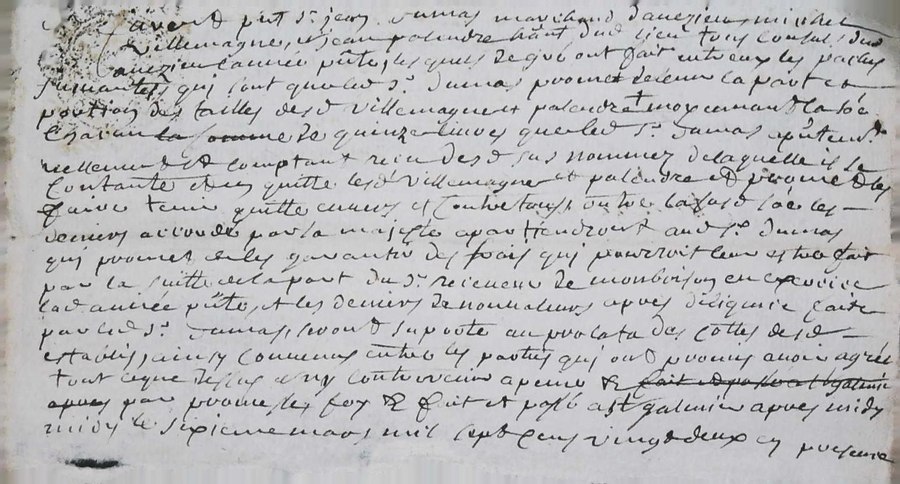 avant pnt Sr jean Dumas marchand daveizieu michel
Villemagne, et jean palendre hant dud lieu tous consuls dud
aveizieu lannee pnte, lesquels de gré ont fait entreux les pactes
suivantes qui sont que led Sr Dumas promet de lever la part et
portion des tailles desd Villemagne et palendre + moyenant la
la somme de quinze livres que led Sr Dumas a
reellement et comptant receu desd sus nommez de laquelle il se
contante et en quitte lesd Villemagne et palendre et promet les
faire tenir quitte envers et contre tous, outre lad les
deniers accordé par sa majesté apartiendront aud Sr Dumas
qui promet de les garantir des frais qui pourroit leur estre fait
par la suitte de la part du Sr receveur de montbrison en exercice
lad année pnte, et les deniers de nonvaleurs apres diligence faite
par led Sr Dumas, seront suporté au prorata des cottes desd
establis, ainsy convenu entre les parties qui ont promis avoir agreé
tout ce que dessus et ny contrevenir a peine & fait et passé a st galmier
apres par promesses foy & fait et passé a st galmier apres midy
midy le sixieme mars mil sept cens vingt deux en presence